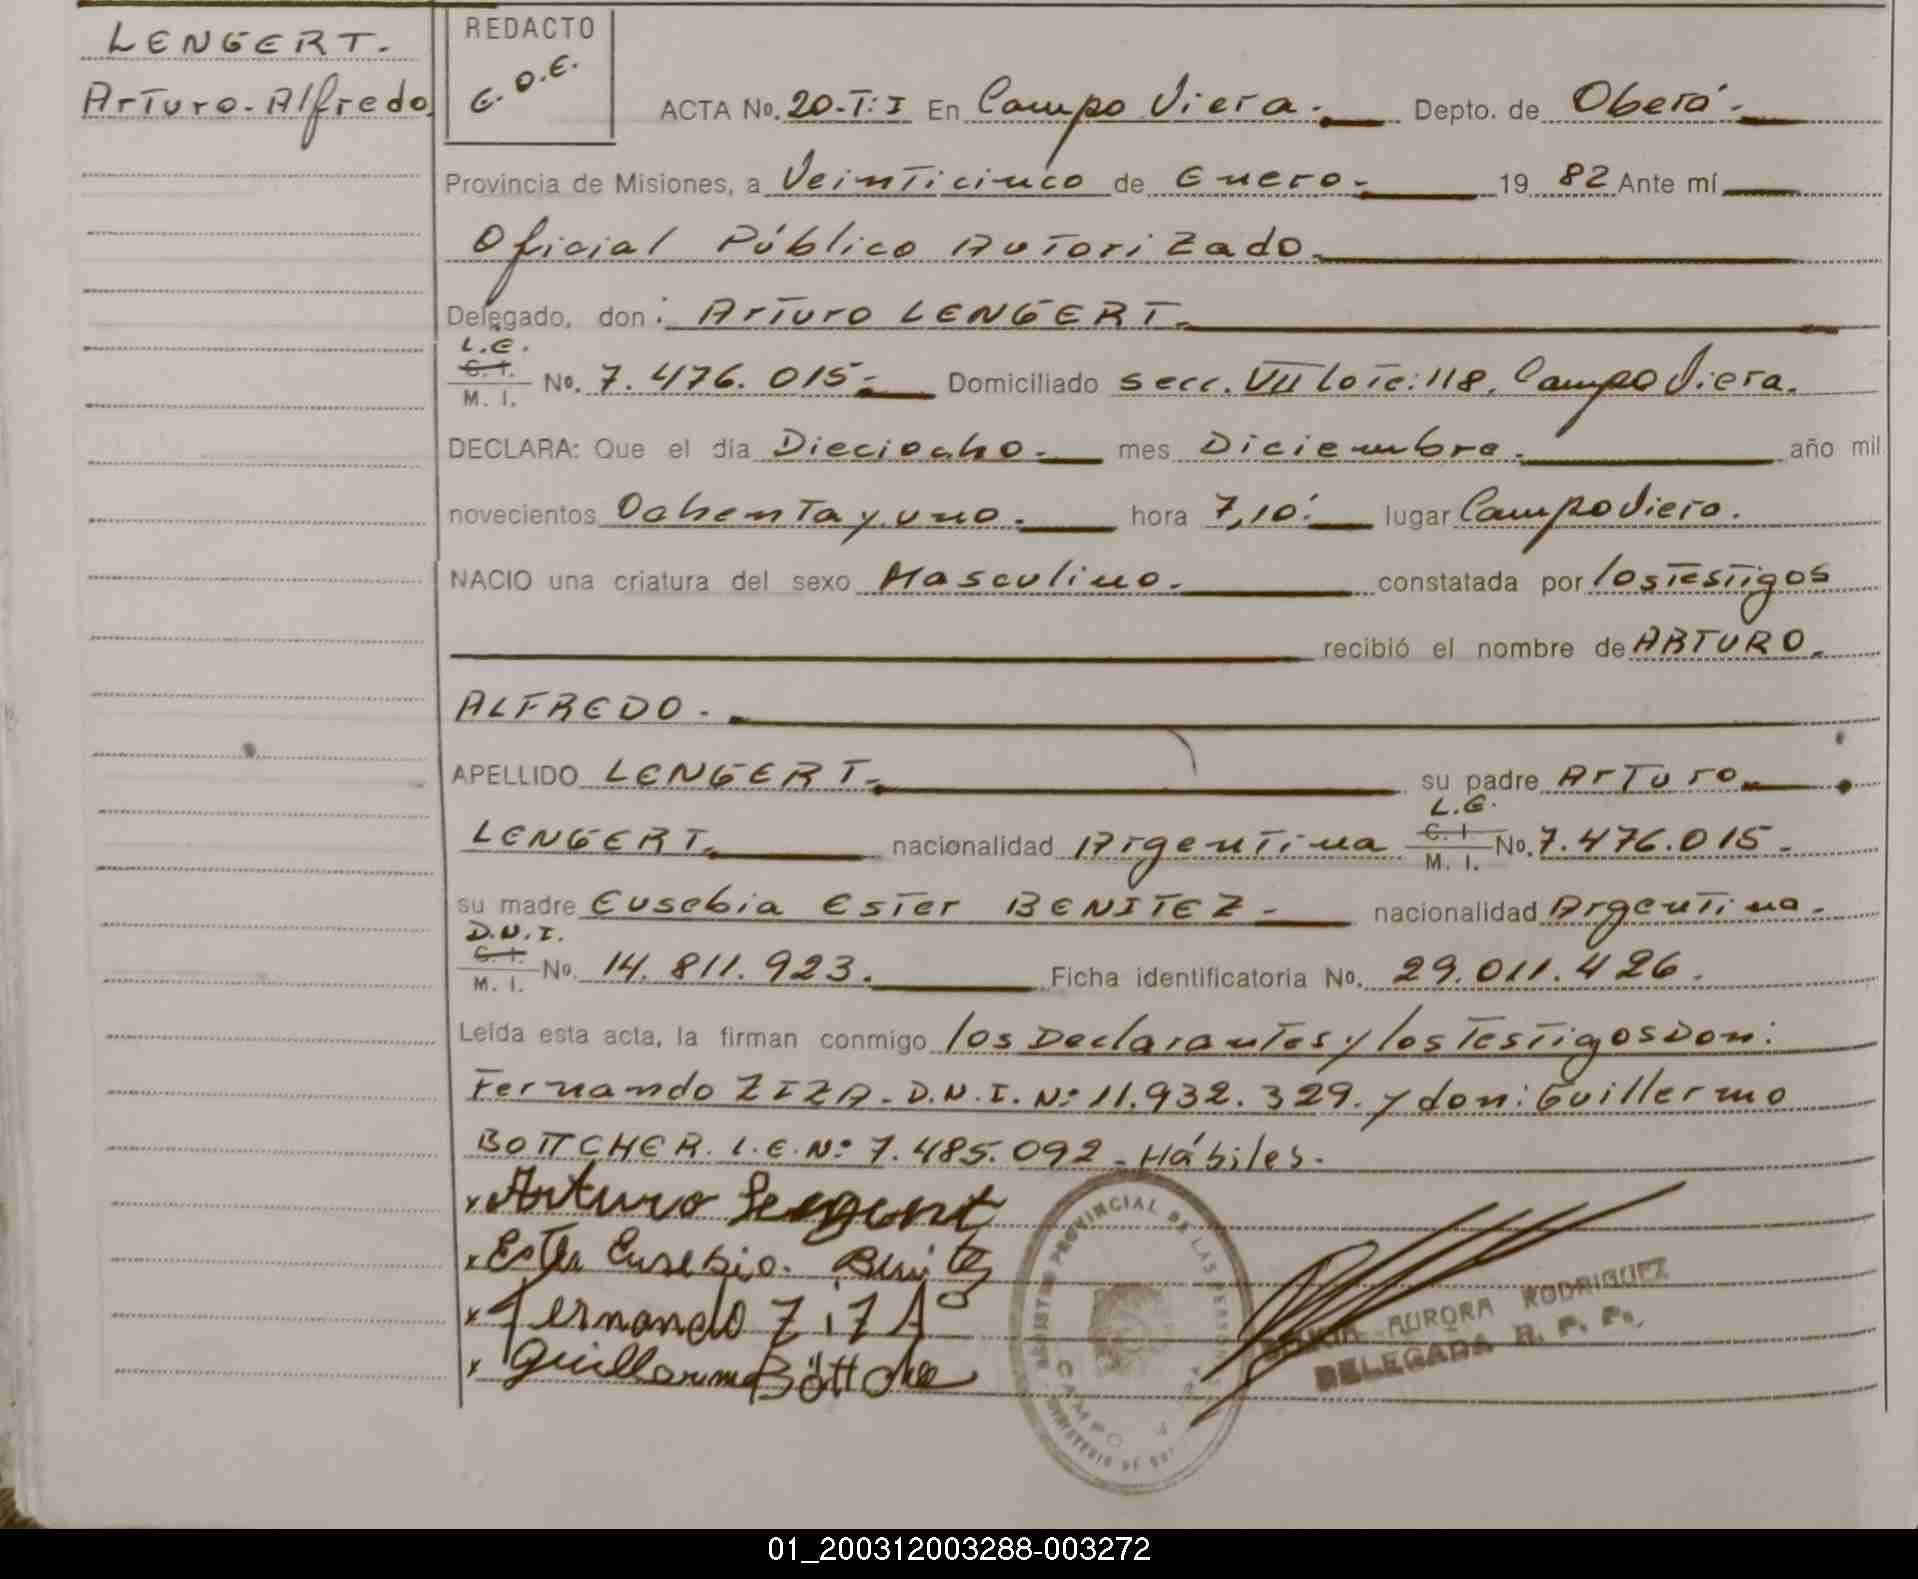 LENGERT.
Arturo-Alfredo.
REDACTO
G.O.E.
ACTA No. 20-T:I En Campo Viera. Depto. de Oberá.
Provincia de Misiones, a Veinticinco de Enero. 19 82 Ante mí
Oficial Público Autorizado.
Delegado, don: Arturo LENGERT.
L.E.
C. I.
M. I. No. 7.476.015. Domiciliado secc. VII lote: 118, Campo Viera.
DECLARA: Que el día Dieciocho. mes Diciembre. año mil
novecientos Ochenta y uno. hora 7,10. lugar Campo Viera.
NACIO una criatura del sexo Masculino. constatada por los Testigos
recibió el nombre de ARTURO.
ALFREDO.
APELLIDO LENGERT. su padre Arturo
LENGERT. nacionalidad Argentina L.E. C. I. M. I. No. 7.476.015.
su madre Eusebia Ester BENITEZ - nacionalidad Argentina.
D.N.I.
C. I.
M. I. No. 14.811.923. Ficha identificatoria No. 29.011.426.
Leída esta acta, la firman conmigo los Declarantes y los Testigos Don:
Fernando ZIZA. D.N.I. Nº 11.932.329. y don: Guillermo
BOTTCHER. L.E. Nº 7.485.092 - Hábiles.
x Arturo Lengert
x Ester Eusebia. Benitez
x Fernando ZiZA
x Guillermo Böttcher
PROVINCIAL DE LAS PERSONAS
CAMPO
MINISTERIO DE
AURORA RODRIGUEZ
DELEGADA R. P. P.
01_200312003288-003272